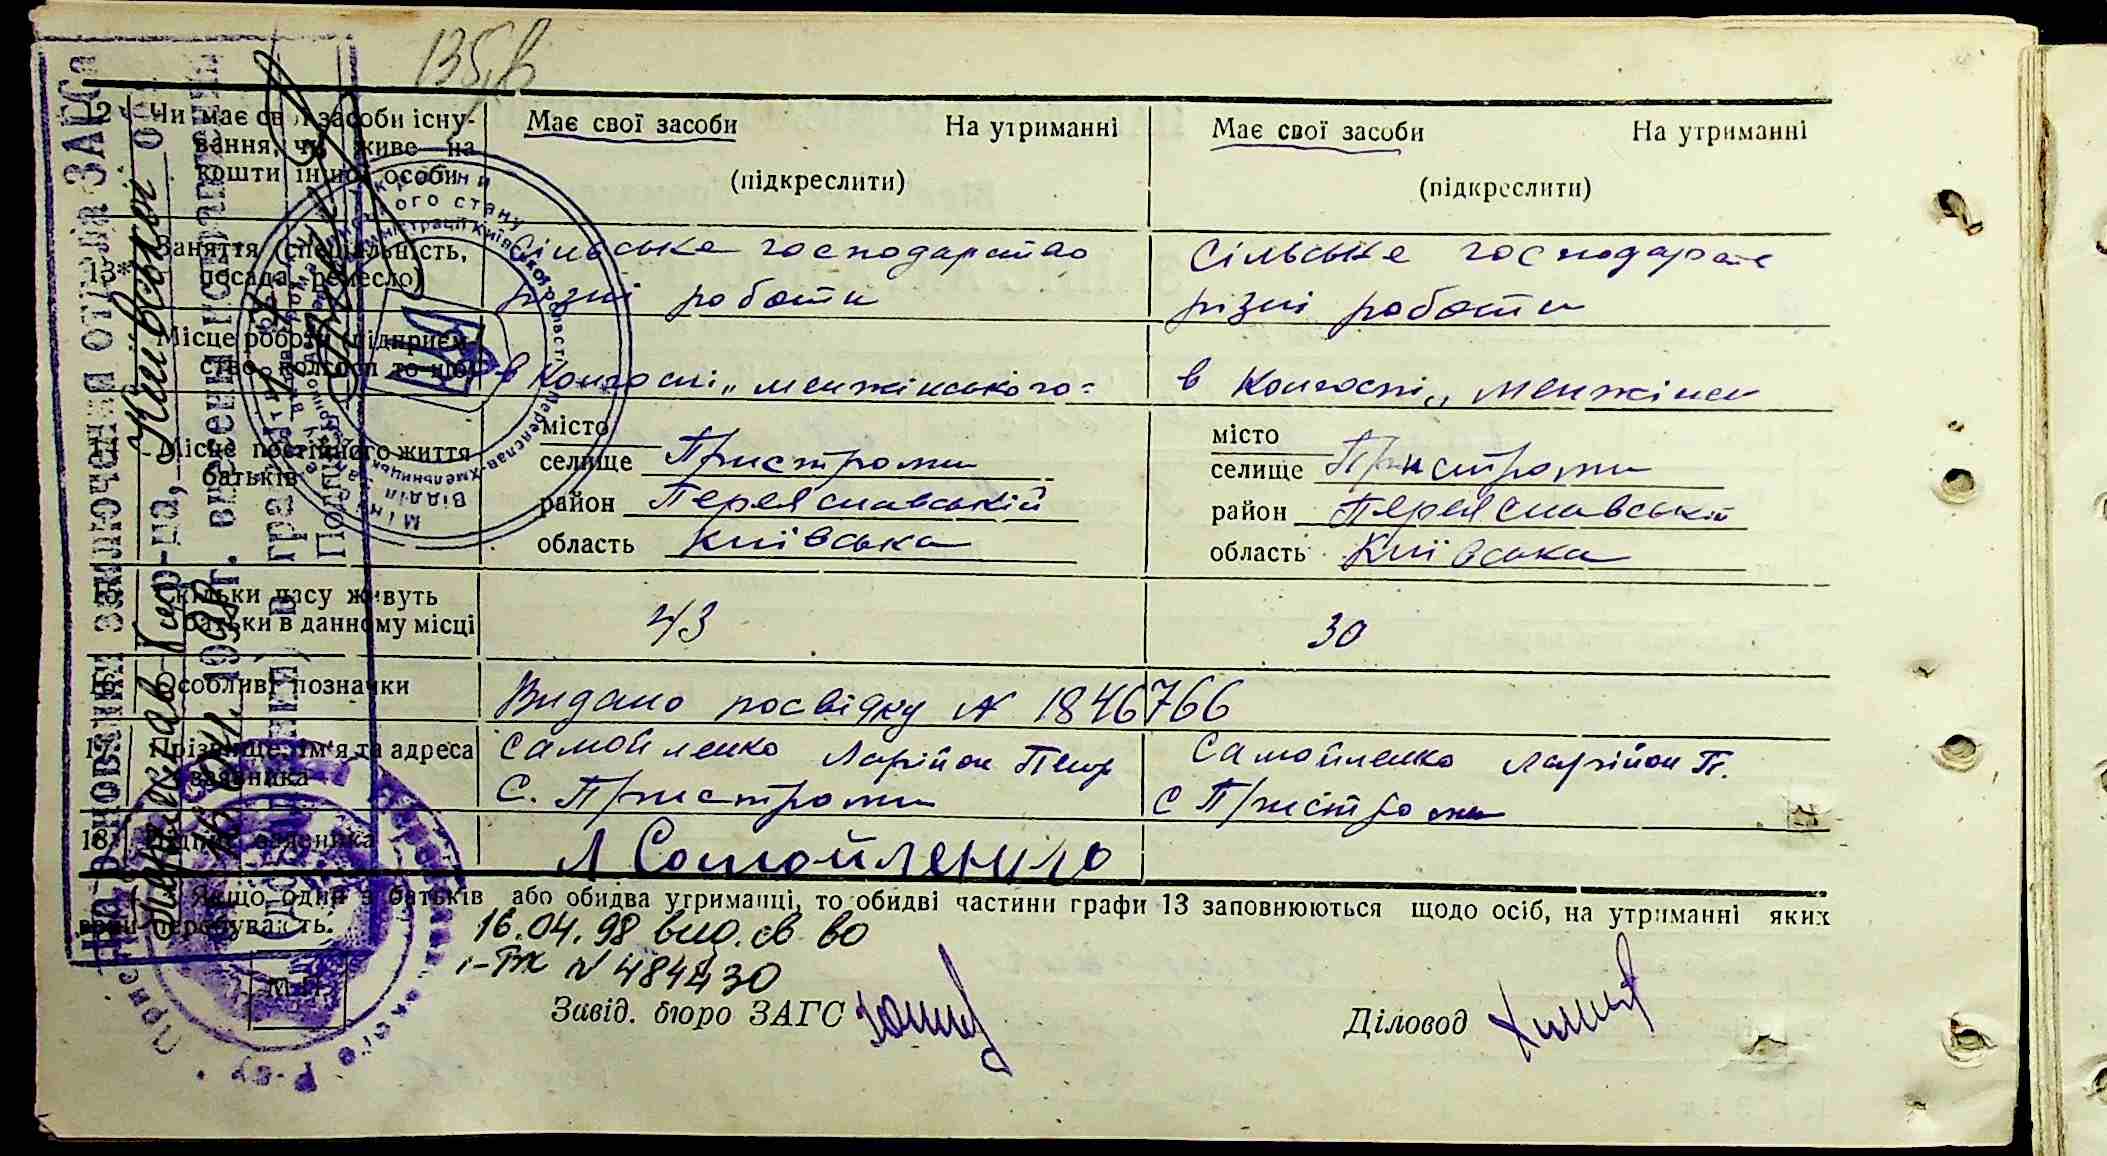 135,в
12 Чи має свої засоби існу-
вання, чи живе на
кошти іншої особи
Має свої засоби На утриманні
(підкреслити)
Має свої засоби На утриманні
(підкреслити)
13* Заняття (спеціальність,
посада, ремесло)
Сільське господарство
різні роботи
Сільське господарств
різні роботи
Місце роботи (підприєм-
ство, колгосп то що)
в Колгоспі „Менжінського"
в Колгоспі „Менжінск
14 Місце постійного життя
батьків
місто
селище Пристроми
район Переяславській
область Київська
місто
селище Пристроми
район Переяславській
область Київська
15 Скільки часу живуть
батьки в данному місці
43
30
16 Особливі позначки
Видано посвідку № 1846766
17 Прізвище, ім'я та адреса
заявника
Самойленко Ларійон Петр
С. Пристроми
Самойленко Ларійон П.
С Пристроми
18 Підпис заявника
Л Самойленко
Якщо один з батьків або обидва утриманці, то обидві частини графи 13 заповнюються щодо осіб, на утриманні яких
вони перебувають.
16.04.98 вид. св во
І-ВК № 484430
М. П.
Завід. бюро ЗАГС
Діловод
На основании заключения отдела ЗАГСа
Киевской
р-на,
1998 г. внесены исправления
в графы
Подпись
Міністерство України
Відділ громадянського стану
Переяслав-Хмельницької
адміністрації Київської області